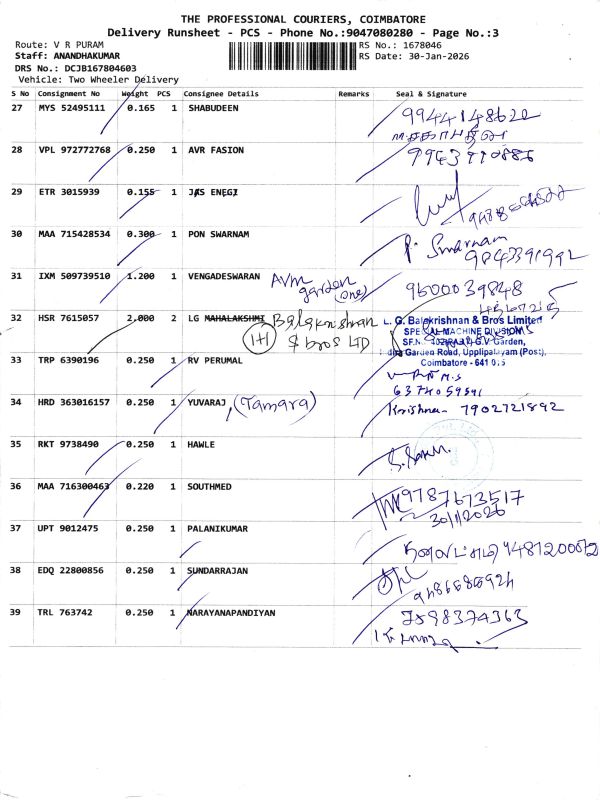 THE PROFESSIONAL COURIERS, COIMBATORE
Delivery Runsheet - PCS - Phone No.:9047080280 - Page No.:3
Route: V R PURAM
RS No.: 1678046
Staff: ANANDHAKUMAR
RS Date: 30-Jan-2026
DRS No.: DCJB167804603
Vehicle: Two Wheeler Delivery
S No Consignment No Weight PCS Consignee Details Remarks Seal & Signature
27 MYS 52495111 0.165 1 SHABUDEEN
28 VPL 972772768 0.250 1 AVR FASION
29 ETR 3015939 0.155 1 JAS ENEGI
30 MAA 715428534 0.300 1 PON SWARNAM P. Swarnam
9843391992
31 IXM 509739510 1.200 1 VENGADESWARAN AVM garden (one) 9600039848
32 HSR 7615057 2.000 2 LG MAHALAKSHMI Balakrishnan & bros LTD
1+1
L. G. Balakrishnan & Bros Limited
SPECIAL MACHINE DIVISION
Garden,
Indira Garden Road, Upplipalayam (Post),
Coimbatore - 641 015
33 TRP 6390196 0.250 1 RV PERUMAL
6374059591
34 HRD 363016157 0.250 1 YUVARAJ, (Tamara) Krishna 7902721892
35 RKT 9738490 0.250 1 HAWLE
36 MAA 716300463 0.220 1 SOUTHMED 9787673517
30/1/2026
37 UPT 9012475 0.250 1 PALANIKUMAR
38 EDQ 22800856 0.250 1 SUNDARRAJAN
39 TRL 763742 0.250 1 NARAYANAPANDIYAN